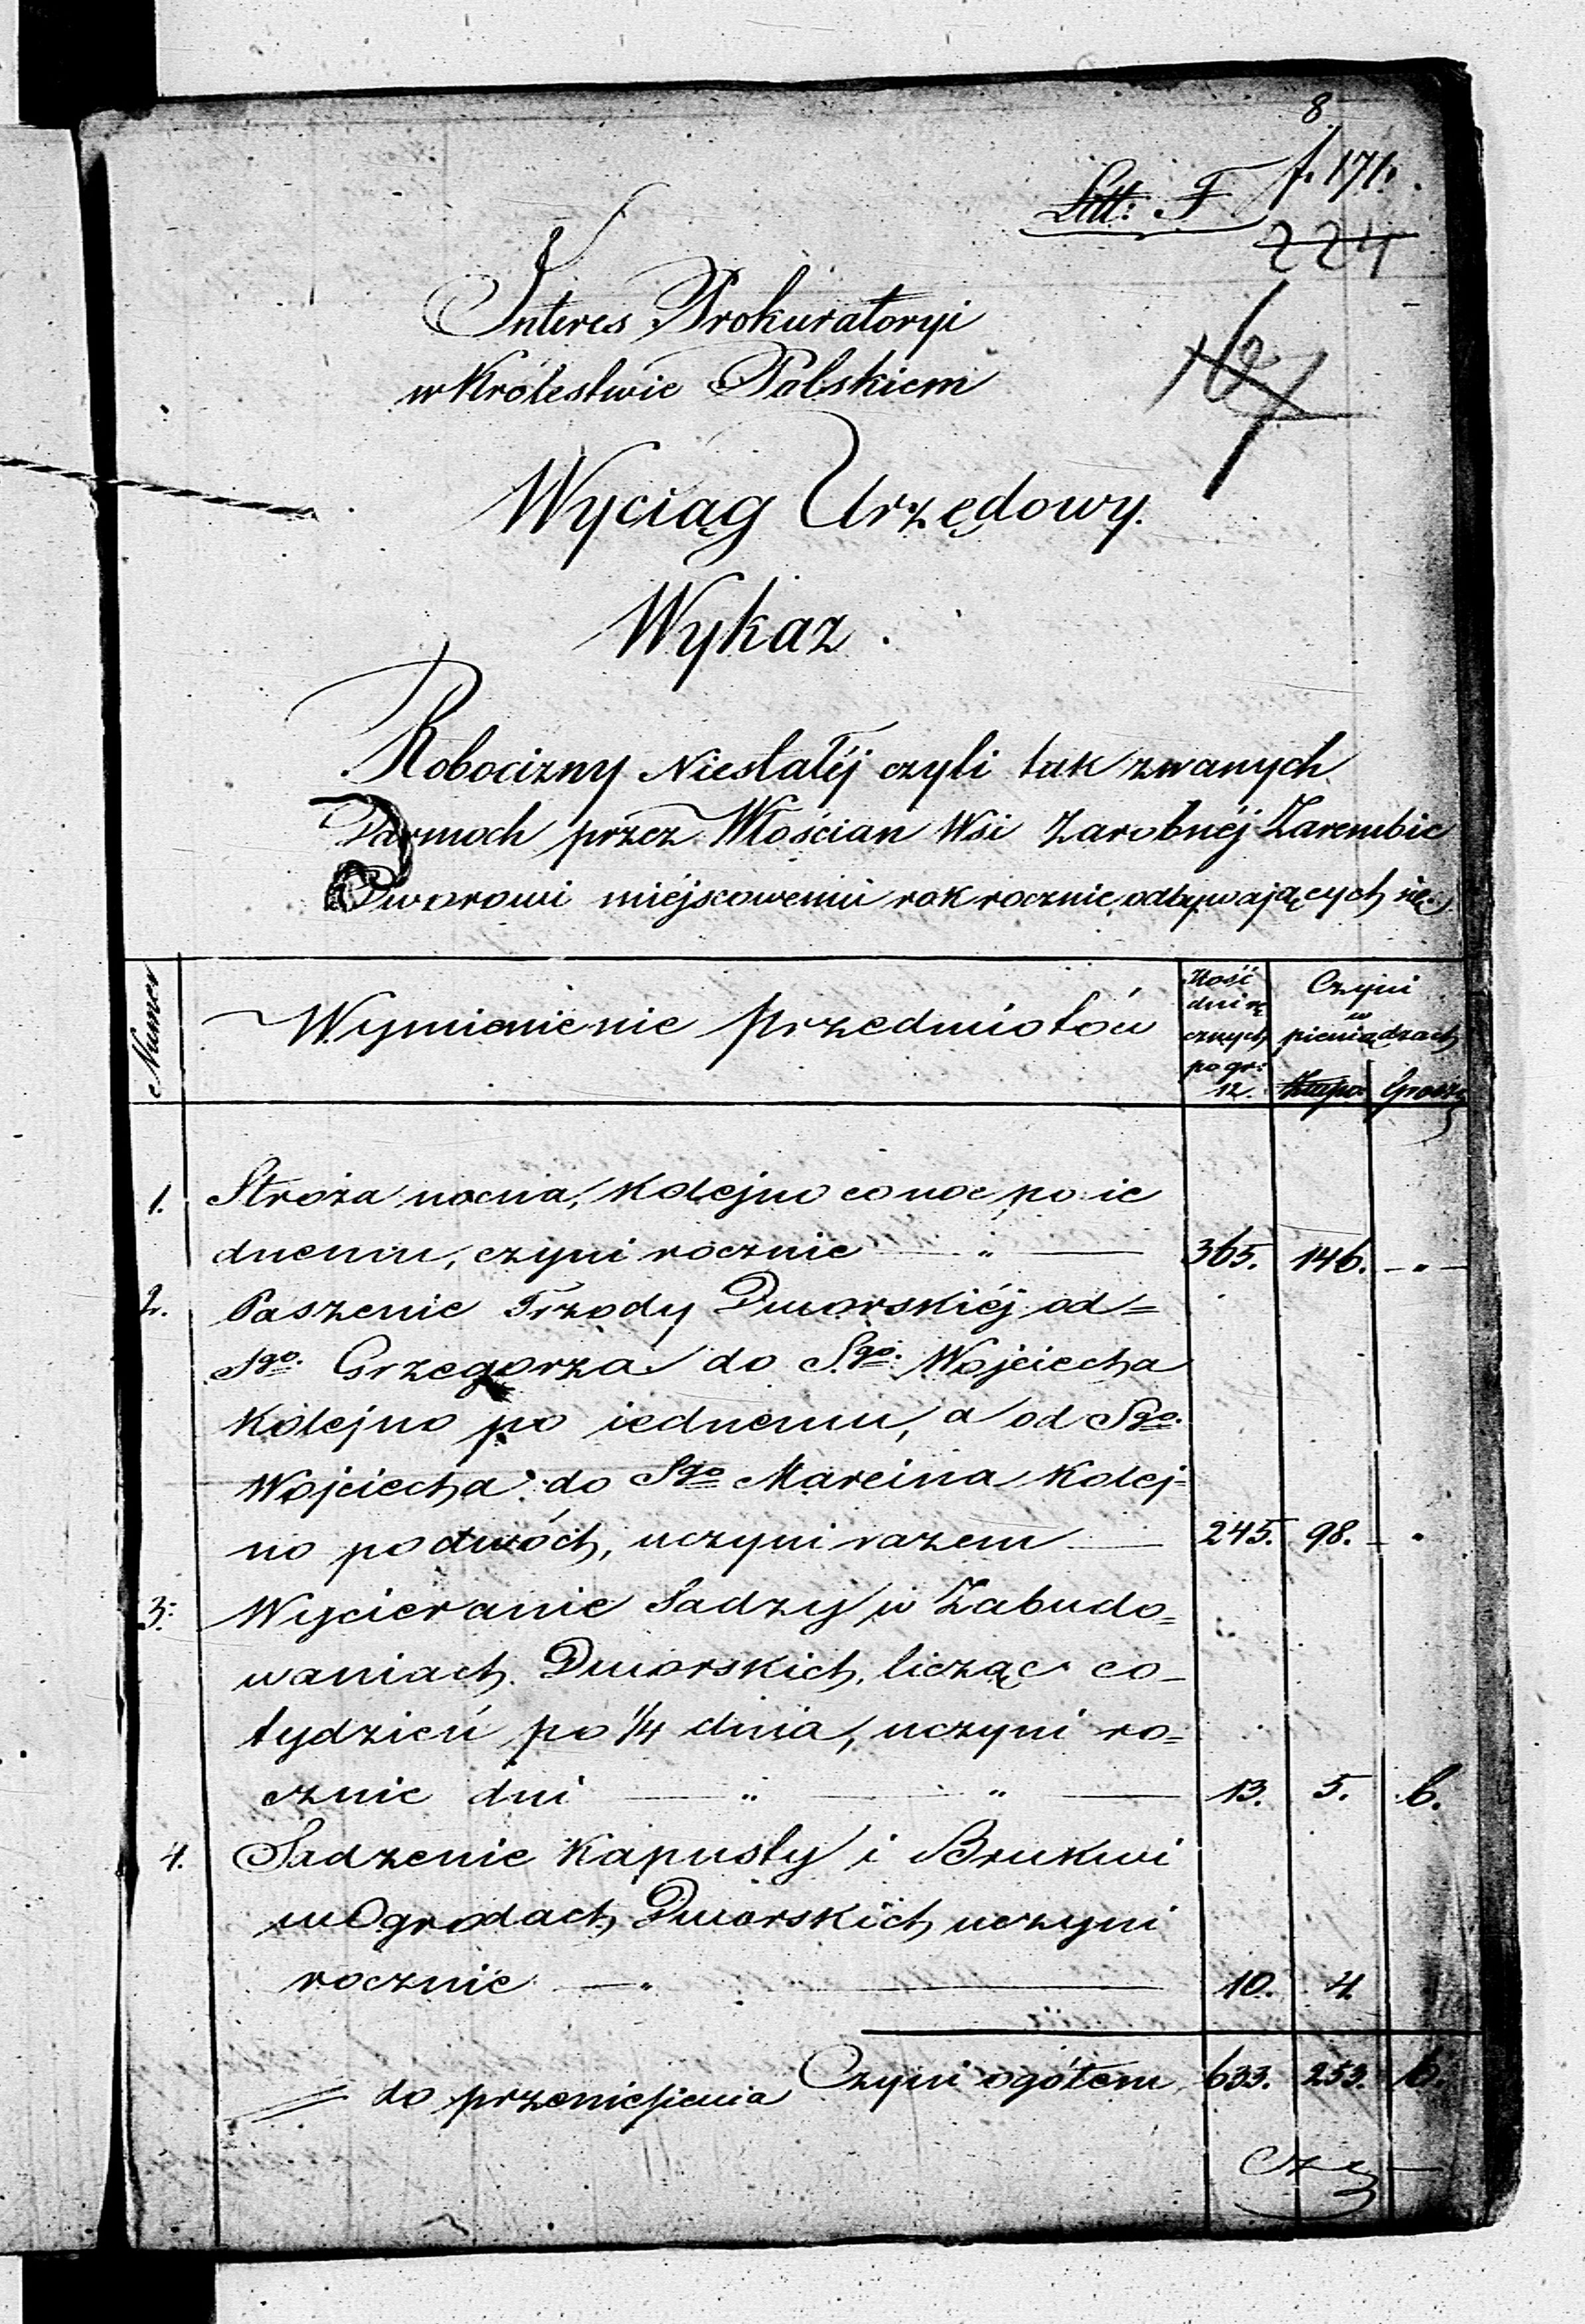 8
Litt: F f. 171.
224
167
Interes Prokuratoryi
w Królestwie Polskiem
Wyciąg Urzędowy.
Wykaz.
Robocizny Niestałéj czyli tak zwanych
Darmoch przez Włościan Wsi Zarobnéj Zarembic
Dworowi miéjscowemu rok rocznie odbywających się
Numer
Wymienienie przedmiotów
Ilość dni rę
cznych
po gr:
12.
Czyni
w
pieniądzach
Złutpo. Groszy
1. Stróża nocna, kolejno co noc po ie
dnemu, czyni rocznie — " — 365. 146. - " -
2. Paszenie Trzody Dworskiéj od=
Sgo. Grzegorza do Sgo. Wojciecha
kolejno po iednemu, a od Sgo.
Wojciecha do Sgo Marcina kolej-
no po dwóch, uczyni razem — 245. 98. - "
3. Wycieranie Sadzy w Zabudo=
waniach Dworskich, licząc co-
tydzień po 1/4 dnia, uczyni ro=
cznie dni — " — " — 13. 5. 6.
4. Sadzenie Kapusty i Brukwi
w Ogrodach Dworskich uczyni
rocznie — " — 10. 4.
do przeniesienia Czyni ogółem 633. 253. 6.